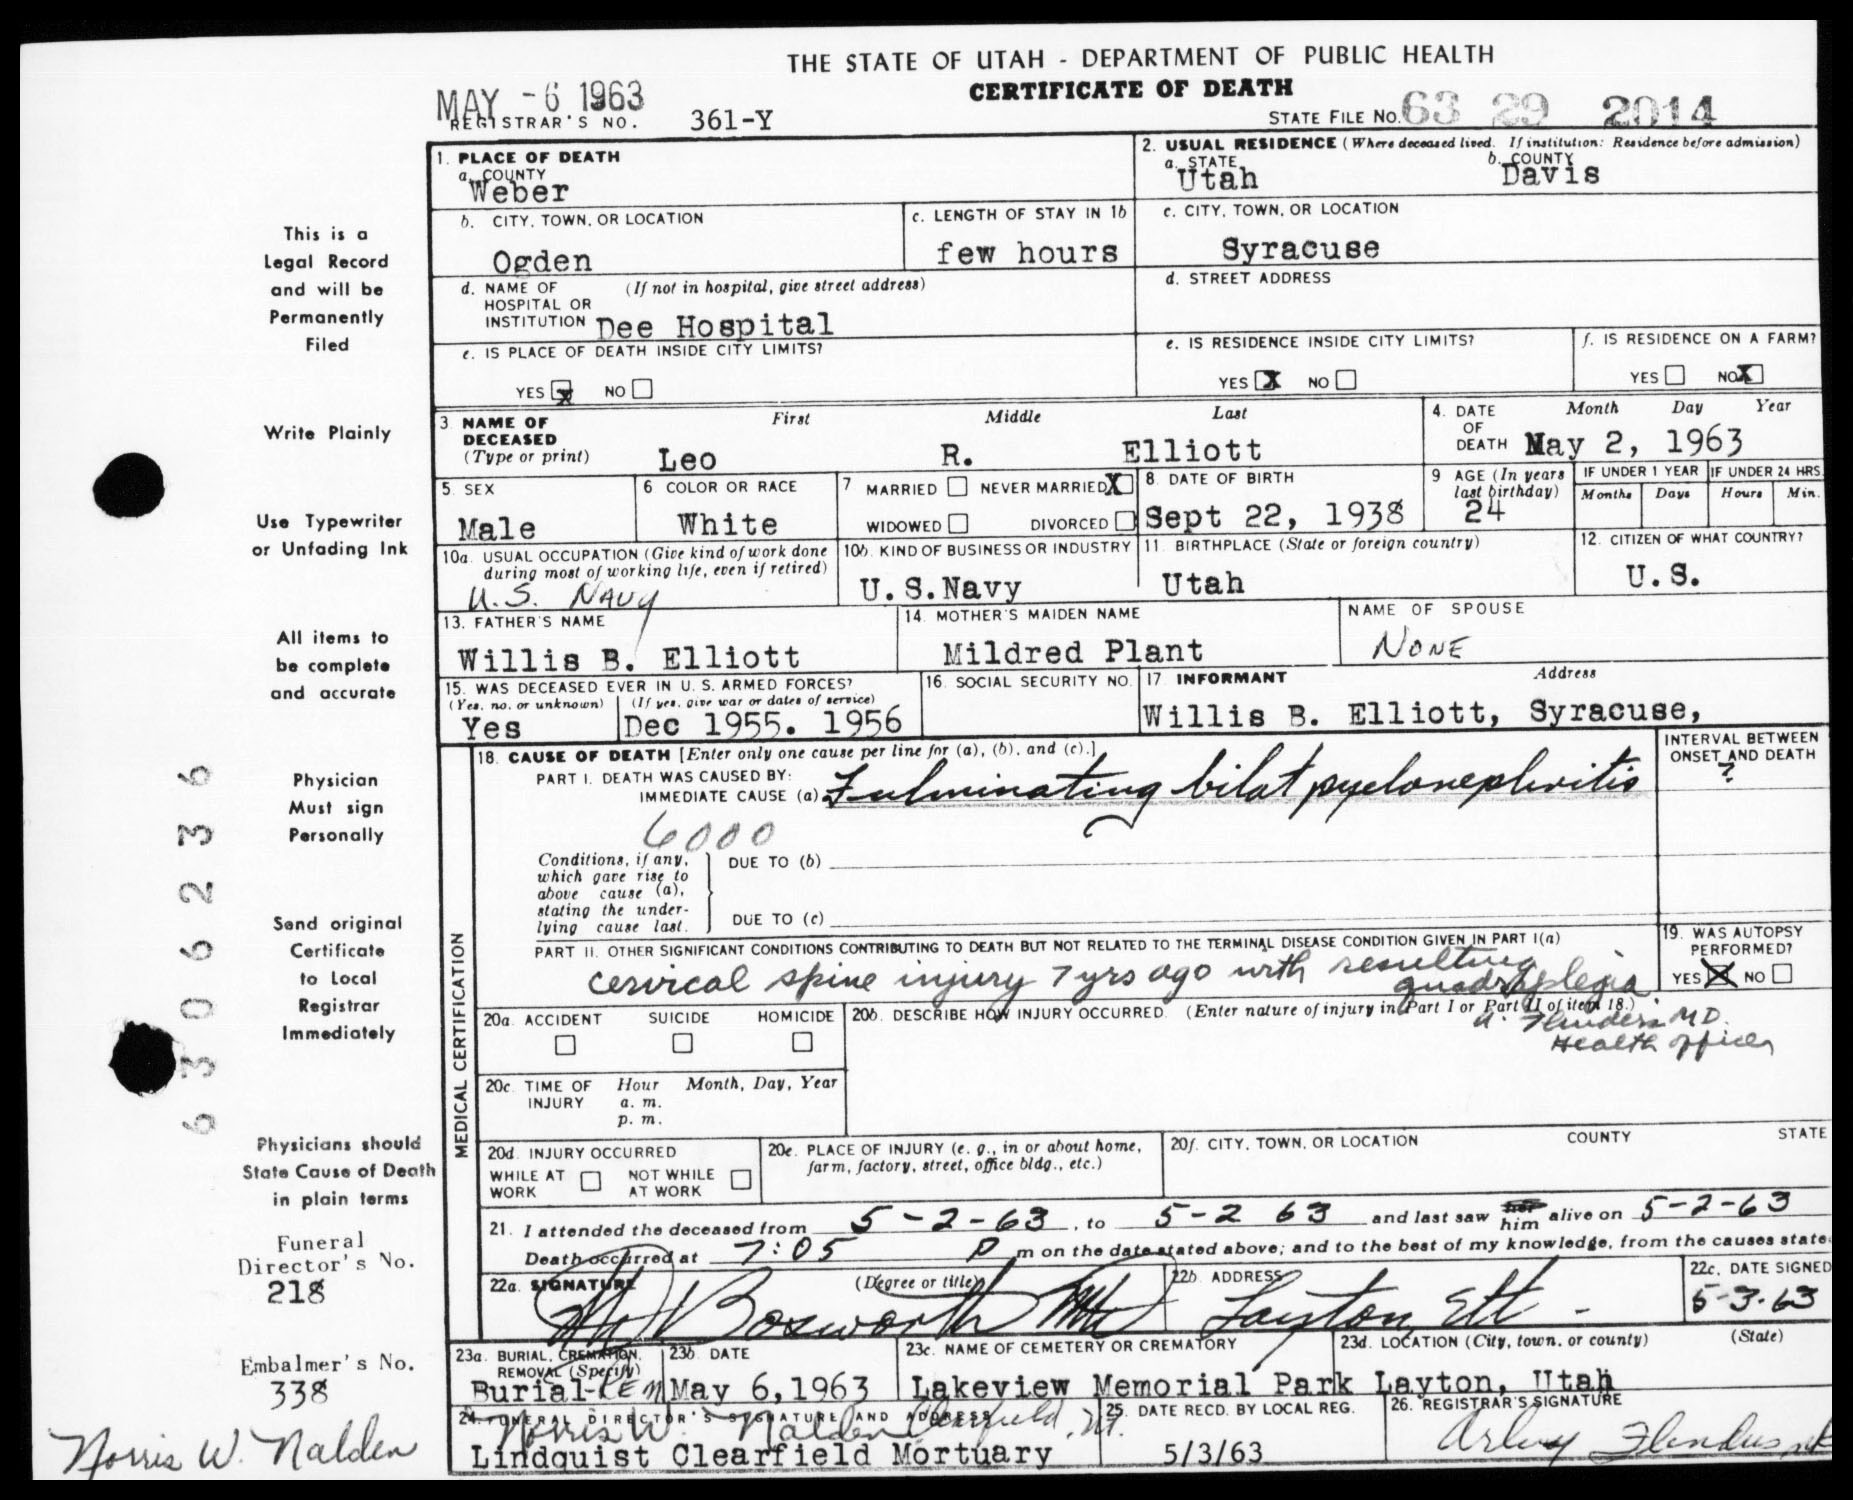 THE STATE OF UTAH - DEPARTMENT OF PUBLIC HEALTH
CERTIFICATE OF DEATH
MAY -6 1963
REGISTRAR'S NO. 361-Y
STATE FILE NO. 63 29 2014
This is a
Legal Record
and will be
Permanently
Filed
Write Plainly
Use Typewriter
or Unfading Ink
All items to
be complete
and accurate
Physician
Must sign
Personally
Send original
Certificate
to Local
Registrar
Immediately
Physicians should
State Cause of Death
in plain terms
Funeral
Director's No.
218
Embalmer's No.
338
Norris W. Nalden
6306236
1. PLACE OF DEATH
a. COUNTY
Weber
2. USUAL RESIDENCE (Where deceased lived. If institution: Residence before admission)
a. STATE b. COUNTY
Utah Davis
b. CITY, TOWN, OR LOCATION
Ogden
c. LENGTH OF STAY IN 1b
few hours
c. CITY, TOWN, OR LOCATION
Syracuse
d. NAME OF (If not in hospital, give street address)
HOSPITAL OR
INSTITUTION Dee Hospital
d. STREET ADDRESS
e. IS PLACE OF DEATH INSIDE CITY LIMITS?
YES X NO
e. IS RESIDENCE INSIDE CITY LIMITS?
YES X NO
f. IS RESIDENCE ON A FARM?
YES NO X
3. NAME OF DECEASED (Type or print)
First Middle Last
Leo R. Elliott
4. DATE OF DEATH
Month Day Year
May 2, 1963
5. SEX
Male
6 COLOR OR RACE
White
7 MARRIED NEVER MARRIED X
WIDOWED DIVORCED
8. DATE OF BIRTH
Sept 22, 1938
9 AGE (In years last birthday)
24
IF UNDER 1 YEAR IF UNDER 24 HRS.
Months Days Hours Min.
10a. USUAL OCCUPATION (Give kind of work done
during most of working life, even if retired)
U.S. NAVY
10b. KIND OF BUSINESS OR INDUSTRY
U.S.Navy
11. BIRTHPLACE (State or foreign country)
Utah
12. CITIZEN OF WHAT COUNTRY?
U.S.
13. FATHER'S NAME
Willis B. Elliott
14. MOTHER'S MAIDEN NAME
Mildred Plant
NAME OF SPOUSE
NONE
15. WAS DECEASED EVER IN U. S. ARMED FORCES?
(Yes, no, or unknown) (If yes, give war or dates of service)
Yes Dec 1955. 1956
16. SOCIAL SECURITY NO.
17 INFORMANT Address
Willis B. Elliott, Syracuse,
MEDICAL CERTIFICATION
18. CAUSE OF DEATH [Enter only one cause per line for (a), (b), and (c).]
PART I. DEATH WAS CAUSED BY:
IMMEDIATE CAUSE (a) Fulminating bilat pyelonephritis
6000
INTERVAL BETWEEN
ONSET AND DEATH
?
Conditions, if any,
which gave rise to
above cause (a),
stating the under-
lying cause last.
DUE TO (b)
DUE TO (c)
PART II. OTHER SIGNIFICANT CONDITIONS CONTRIBUTING TO DEATH BUT NOT RELATED TO THE TERMINAL DISEASE CONDITION GIVEN IN PART I(a)
cervical spine injury 7 yrs ago with resulting
quadraplegia
19. WAS AUTOPSY
PERFORMED?
YES X NO
20a. ACCIDENT SUICIDE HOMICIDE
20b. DESCRIBE HOW INJURY OCCURRED. (Enter nature of injury in Part I or Part II of item 18.)
A. Flinders MD.
Health officer
20c. TIME OF INJURY
Hour Month, Day, Year
a. m.
p. m.
20d. INJURY OCCURRED
WHILE AT WORK NOT WHILE AT WORK
20e. PLACE OF INJURY (e. g., in or about home,
farm, factory, street, office bldg., etc.)
20f. CITY, TOWN, OR LOCATION COUNTY STATE
21. I attended the deceased from 5-2-63, to 5-2 63 and last saw her him alive on 5-2-63
Death occurred at 7:05 P m on the date stated above; and to the best of my knowledge, from the causes state
22a. SIGNATURE (Degree or title)
Bosworth MD
22b. ADDRESS
Layton, Ut -
22c. DATE SIGNED
5-3-63
23a. BURIAL, CREMATION,
REMOVAL (Specify)
Burial-REM
23b. DATE
May 6, 1963
23c. NAME OF CEMETERY OR CREMATORY
Lakeview Memorial Park
23d. LOCATION (City, town, or county) (State)
Layton, Utah
24. FUNERAL DIRECTOR'S SIGNATURE AND ADDRESS
Norris W. Nalden Clearfield, Ut.
Lindquist Clearfield Mortuary
25. DATE RECD. BY LOCAL REG.
5/3/63
26. REGISTRAR'S SIGNATURE